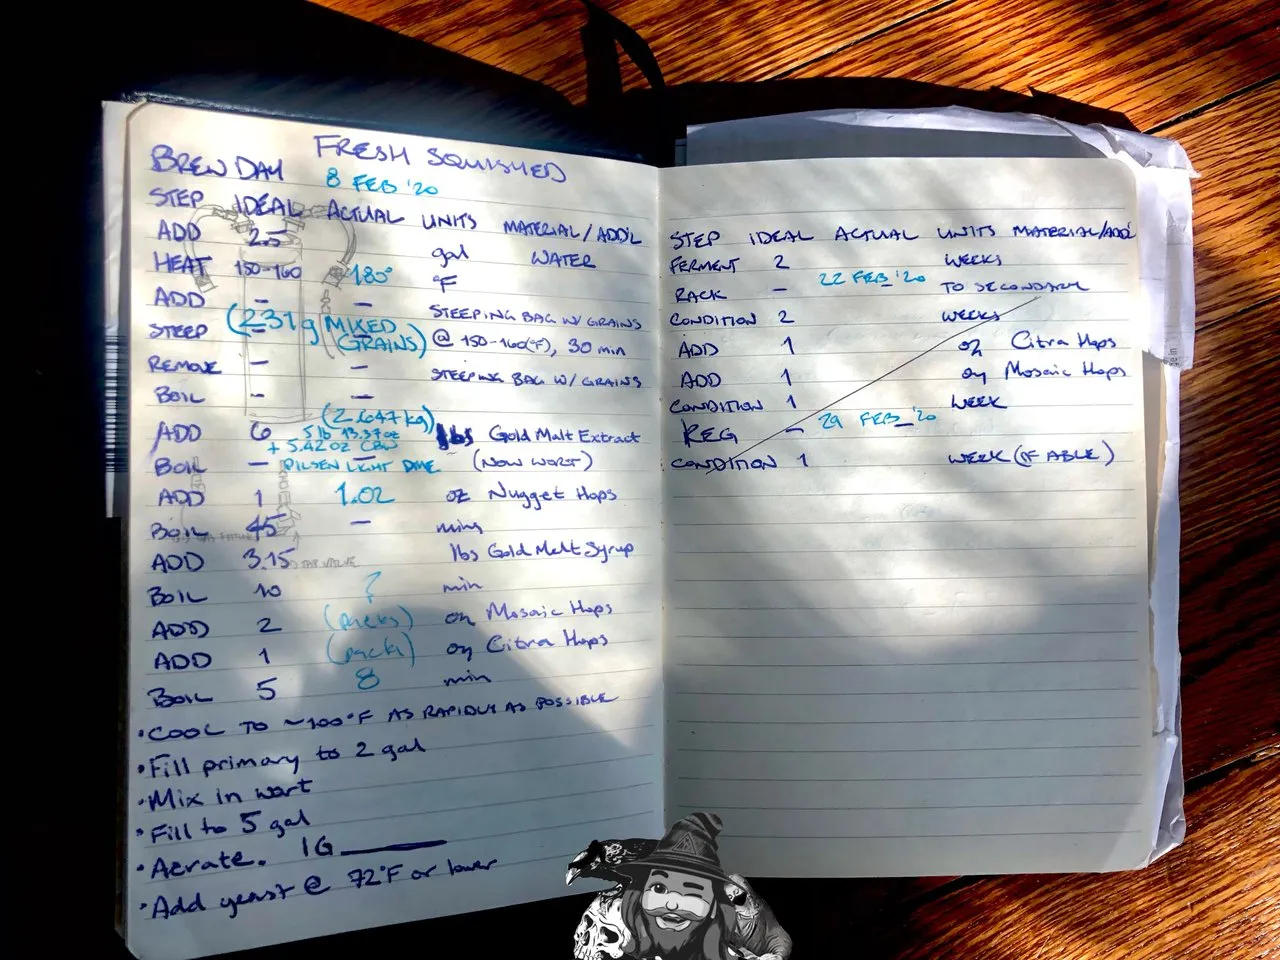 FRESH SQUISHED
BREW DAY 8 FEB '20
STEP IDEAL ACTUAL UNITS MATERIAL/ADD'L
ADD 2.5 gal WATER
HEAT 150-160 180° °F
ADD – – STEEPING BAG W/ GRAINS
STEEP – (231g MIXED GRAINS) @ 150-160(°F), 30 min
REMOVE – – STEEPING BAG W/ GRAINS
BOIL – –
ADD 6 (2.647kg) 5 lb 13.37oz + 5.42 oz CBW PILSEN LIGHT DME lbs Gold Malt Extract
BOIL – – (NOW WORT)
ADD 1 1.02 oz Nugget Hops
BOIL 45 – mins
ADD 3.15 lbs Gold Malt Syrup
BOIL 10 ? min
ADD 2 (packs) oz Mosaic Hops
ADD 1 (pack) oz Citra Hops
BOIL 5 8 min
• COOL TO ~100°F AS RAPIDLY AS POSSIBLE
• Fill primary to 2 gal
• Mix in wort
• Fill to 5 gal
• Aerate. IG
• Add yeast @ 72°F or lower
STEP IDEAL ACTUAL UNITS MATERIAL/ADD'L
FERMENT 2 WEEKS
RACK – 22 FEB '20 TO SECONDARY
CONDITION 2 WEEKS
ADD 1 oz Citra Hops
ADD 1 oz Mosaic Hops
CONDITION 1 WEEK
KEG – 29 FEB '20
CONDITION 1 WEEK (IF ABLE)